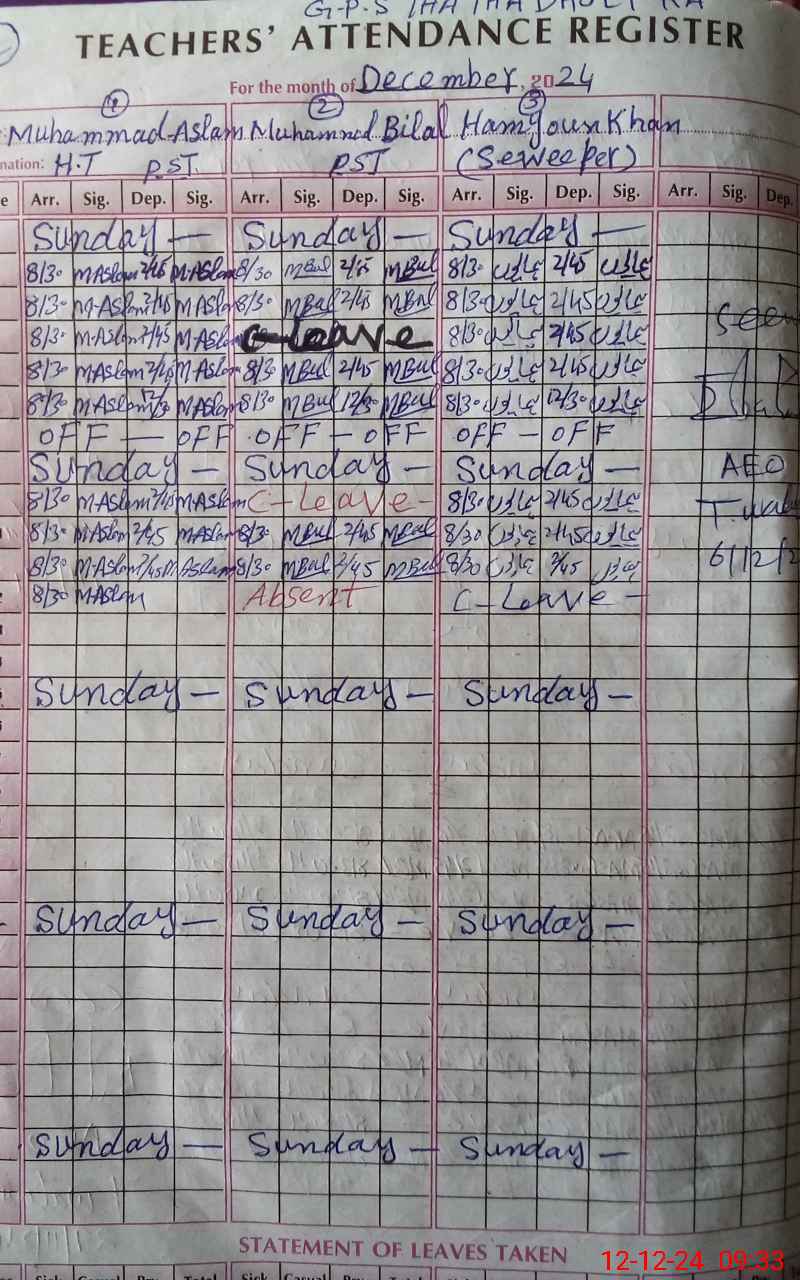 G.P.S THATHA DHOLI KA
TEACHERS' ATTENDANCE REGISTER
For the month of December, 2024
1 2 3
Muhammad Aslam Muhammad Bilal Hamyoun Khan
nation: H.T PST. PST (Seweeper)
e Arr. Sig. Dep. Sig. Arr. Sig. Dep. Sig. Arr. Sig. Dep. Sig. Arr. Sig. Dep.
Sunday — Sunday — Sunday —
8/30 M Aslam 2/45 M Aslam 8/30 MBil 2/45 MBil 8/30 2/45
8/30 M-Aslam 2/45 M Aslam 8/30 MBil 2/45 MBil 8/30 2/45
8/30 M-Aslam 2/45 M Aslam C-Leave 8/30 2/45 Seen
8/30 M-Aslam 2/45 M-Aslam 8/30 MBil 2/45 MBil 8/30 2/45
8/30 M-Aslam 12/30 M Aslam 8/30 MBil 12/30 MBil 8/30 12/30
OFF — OFF OFF — OFF OFF — OFF
Sunday — Sunday — Sunday — AEO
8/30 M-Aslam 2/45 M Aslam C-Leave- 8/30 2/45
8/30 M Aslam 2/45 M Aslam 8/30 MBil 2/45 MBil 8/30 2/45
8/30 M-Aslam 2/45 M Aslam 8/30 MBil 2/45 MBil 8/30 2/45 6/12/2
8/30 M-Aslam Absent C-Leave -
Sunday — Sunday — Sunday —
Sunday — Sunday — Sunday —
Sunday — Sunday — Sunday —
STATEMENT OF LEAVES TAKEN
12-12-24 09:33
Sick Casual Total Sick Casual Total